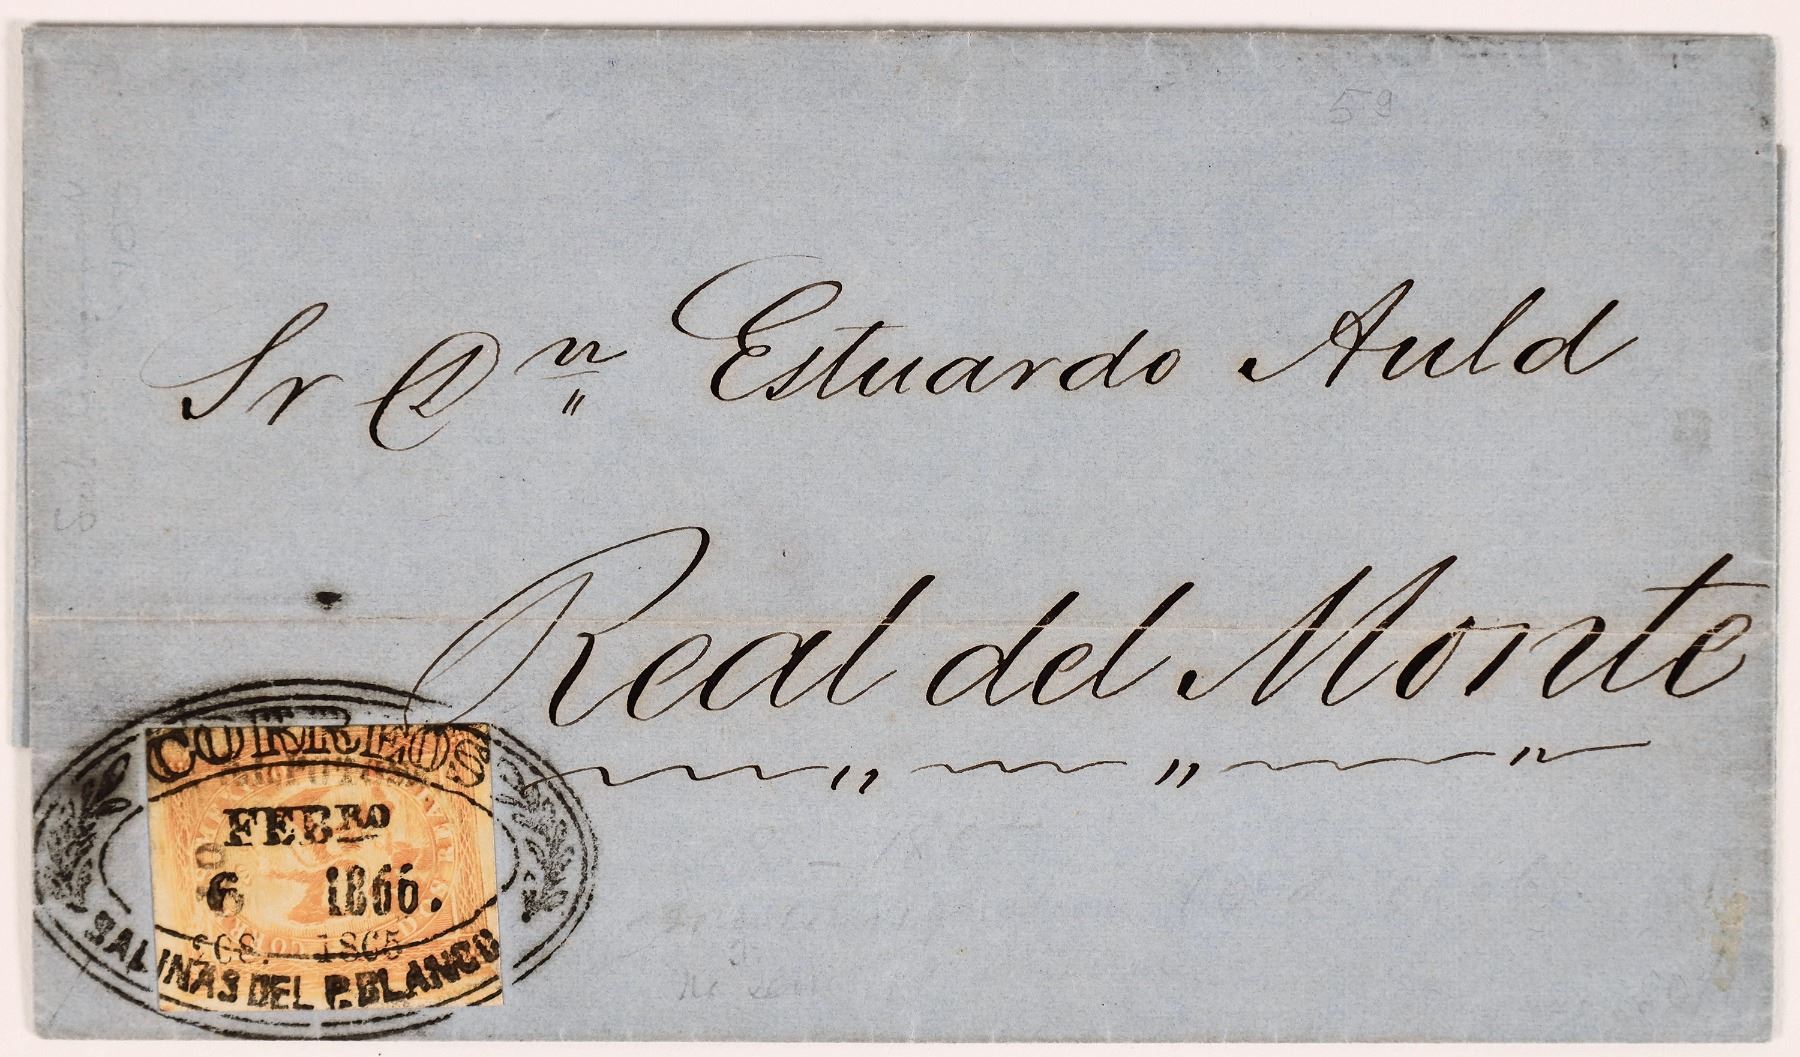 59
Sr Dn Estuardo Auld
Real del Monte
CORREOS
FEBRO
6 1866.
208. 1865
SALINAS DEL P. BLANCO